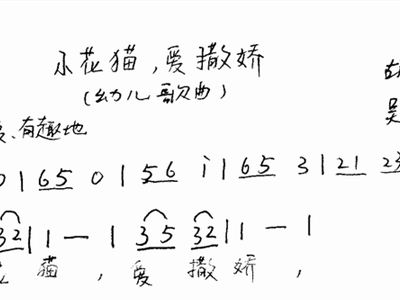 小花猫，爱撒娇
(幼儿歌曲)
吴
、有趣地
0 | 65 0 | 56 i | 65 3 | 21 23
32 | 1 — | 35 32 | 1 — |
花 猫 ， 爱 撒 娇 ，